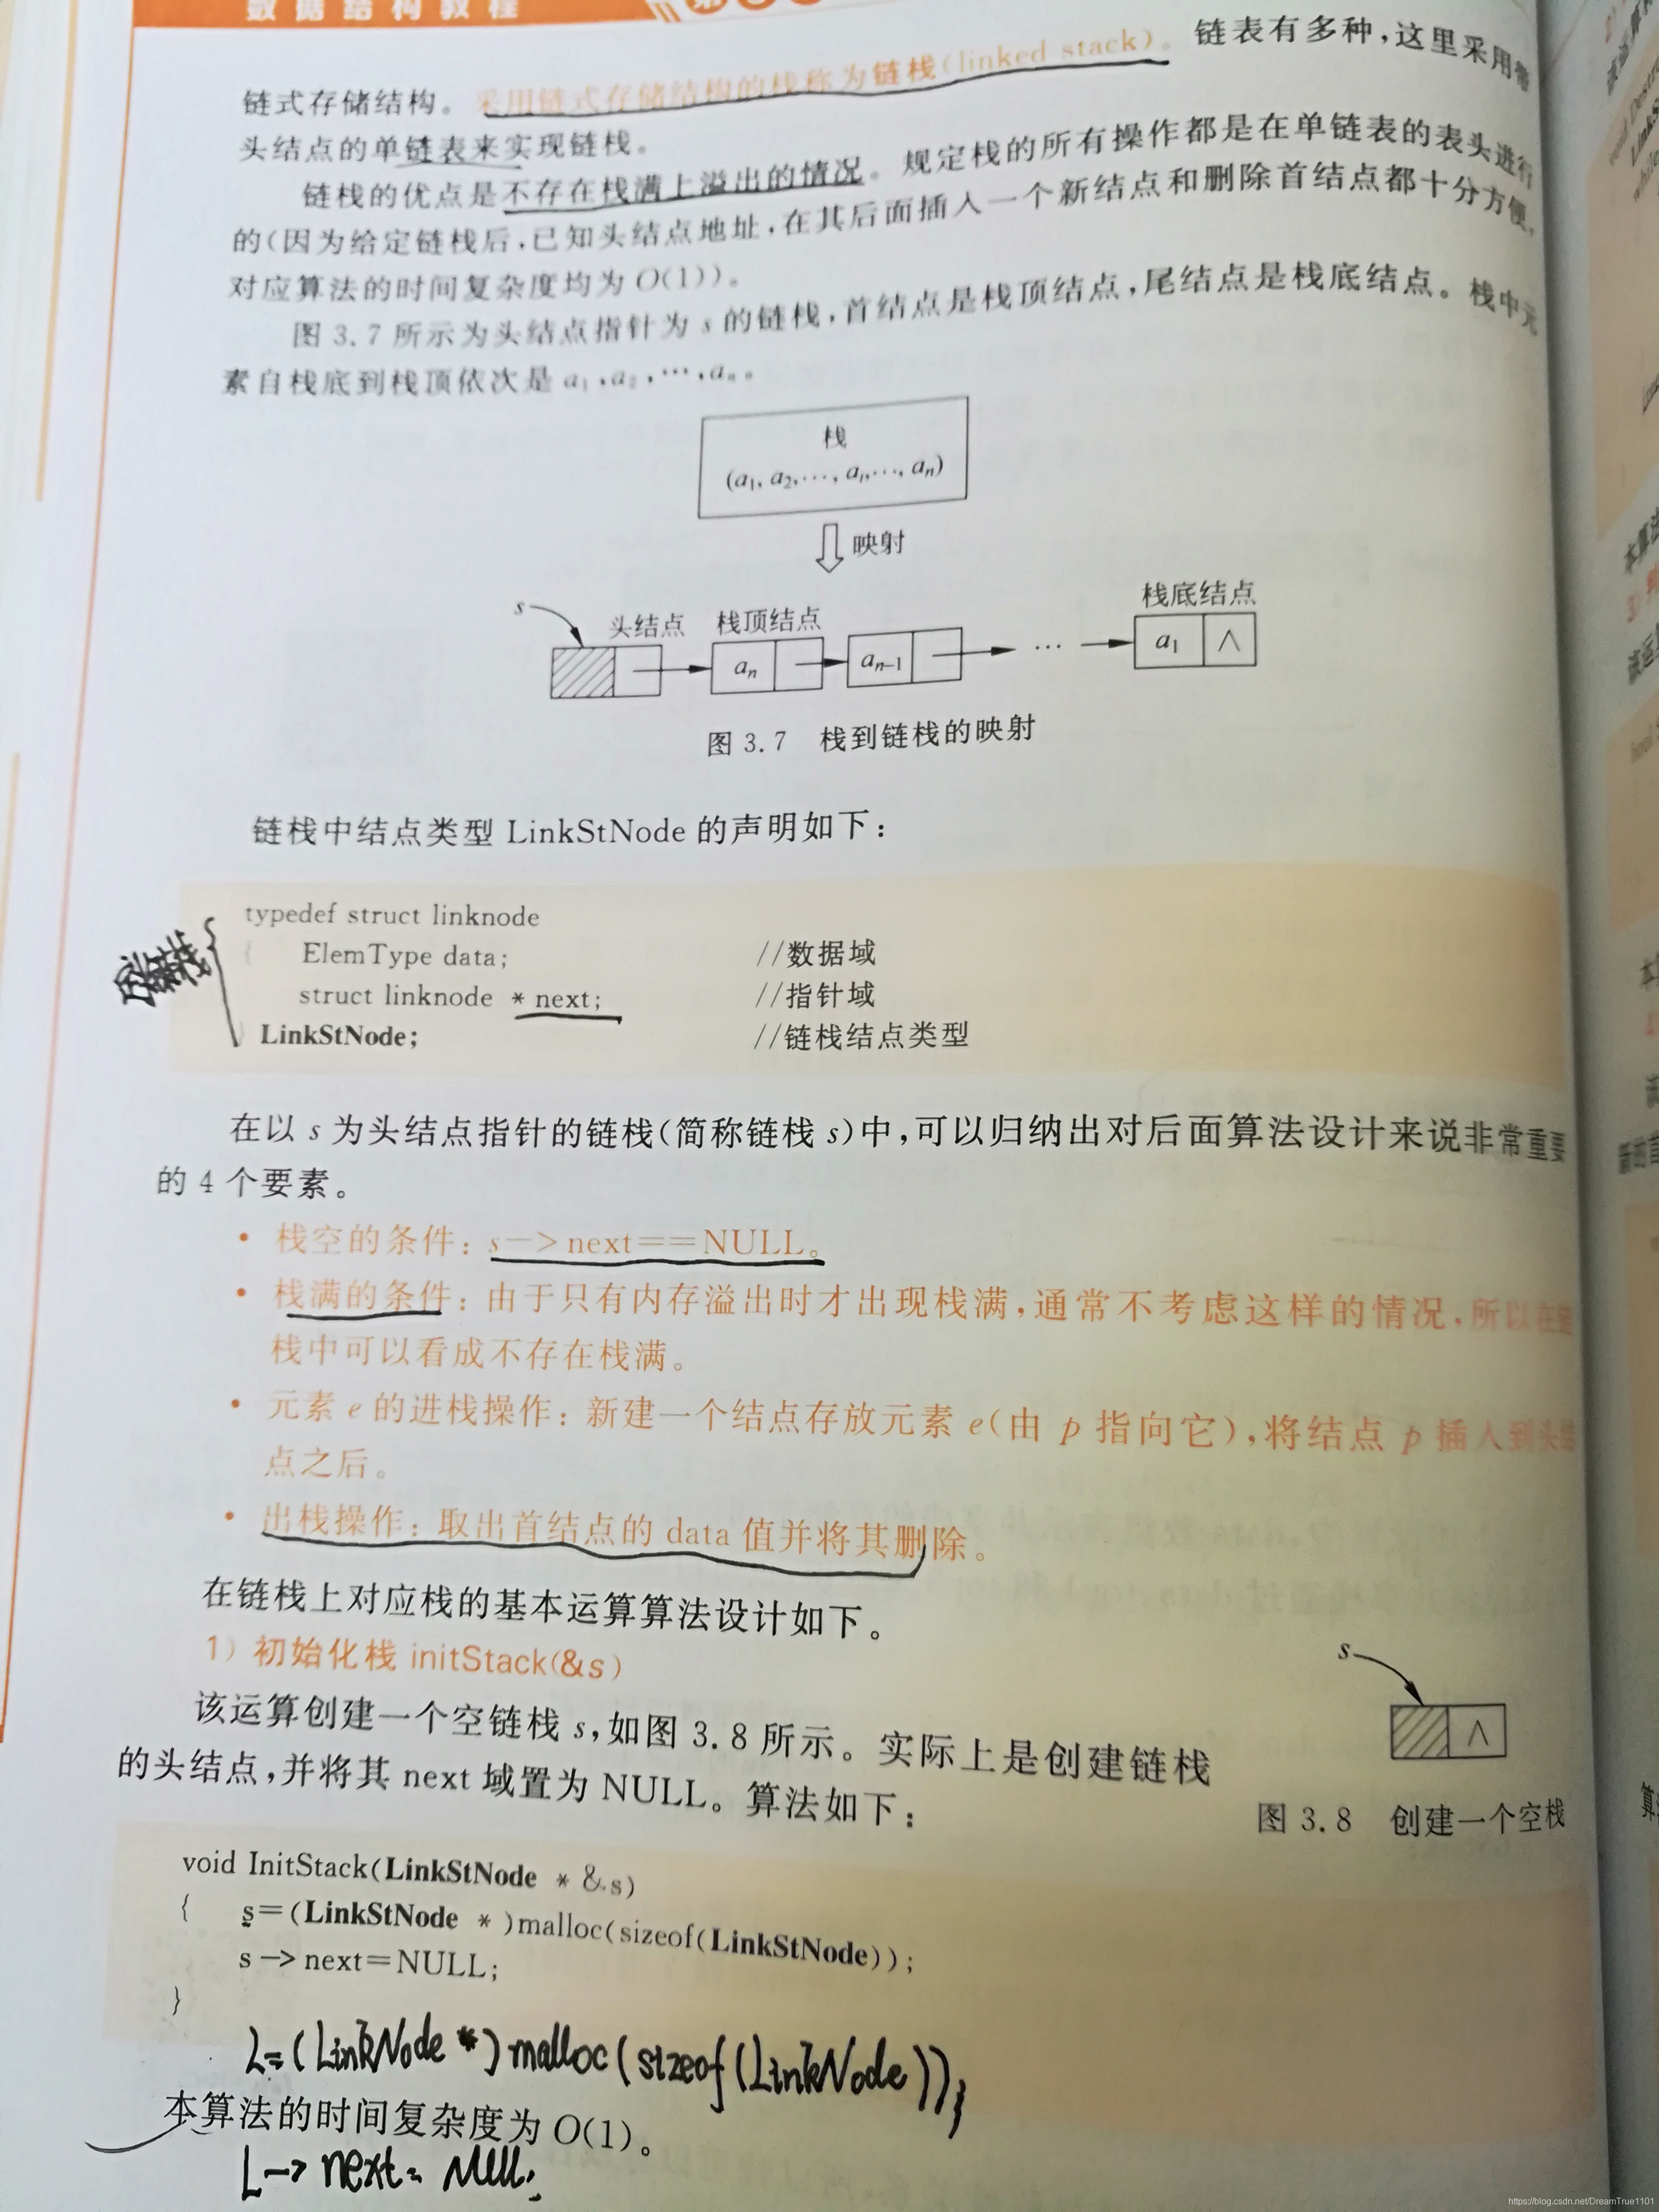 数据结构教程
链式存储结构。采用链式存储结构的栈称为链栈(linked stack)。链表有多种,这里采用带
头结点的单链表来实现链栈。
链栈的优点是不存在栈满上溢出的情况。规定栈的所有操作都是在单链表的表头进行
的(因为给定链栈后,已知头结点地址,在其后面插入一个新结点和删除首结点都十分方便,
对应算法的时间复杂度均为 O(1))。
图 3.7 所示为头结点指针为 s 的链栈,首结点是栈顶结点,尾结点是栈底结点。栈中元
素自栈底到栈顶依次是 a₁,a₂,…,aₙ。
栈
(a₁, a₂,…, aᵢ,…, aₙ)
映射
s 头结点 栈顶结点 栈底结点
aₙ aₙ₋₁ … a₁ ∧
图 3.7 栈到链栈的映射
链栈中结点类型 LinkStNode 的声明如下:
typedef struct linknode
{ ElemType data; //数据域
struct linknode * next; //指针域
} LinkStNode; //链栈结点类型
在以 s 为头结点指针的链栈(简称链栈 s)中,可以归纳出对后面算法设计来说非常重要
的 4 个要素。
• 栈空的条件: s—>next==NULL。
• 栈满的条件: 由于只有内存溢出时才出现栈满,通常不考虑这样的情况,所以在链
栈中可以看成不存在栈满。
• 元素 e 的进栈操作: 新建一个结点存放元素 e(由 p 指向它),将结点 p 插入到头结
点之后。
• 出栈操作: 取出首结点的 data 值并将其删除。
在链栈上对应栈的基本运算算法设计如下。
1) 初始化栈 initStack(&s)
该运算创建一个空链栈 s,如图 3.8 所示。实际上是创建链栈
的头结点,并将其 next 域置为 NULL。算法如下:
s
∧
图 3.8 创建一个空栈
void InitStack(LinkStNode * &s)
{ s=(LinkStNode * )malloc(sizeof(LinkStNode));
s—>next=NULL;
}
L=(LinkNode *)malloc(sizeof(LinkNode));
本算法的时间复杂度为 O(1)。
L→next=NULL;
https://blog.csdn.net/DreamTrue1101